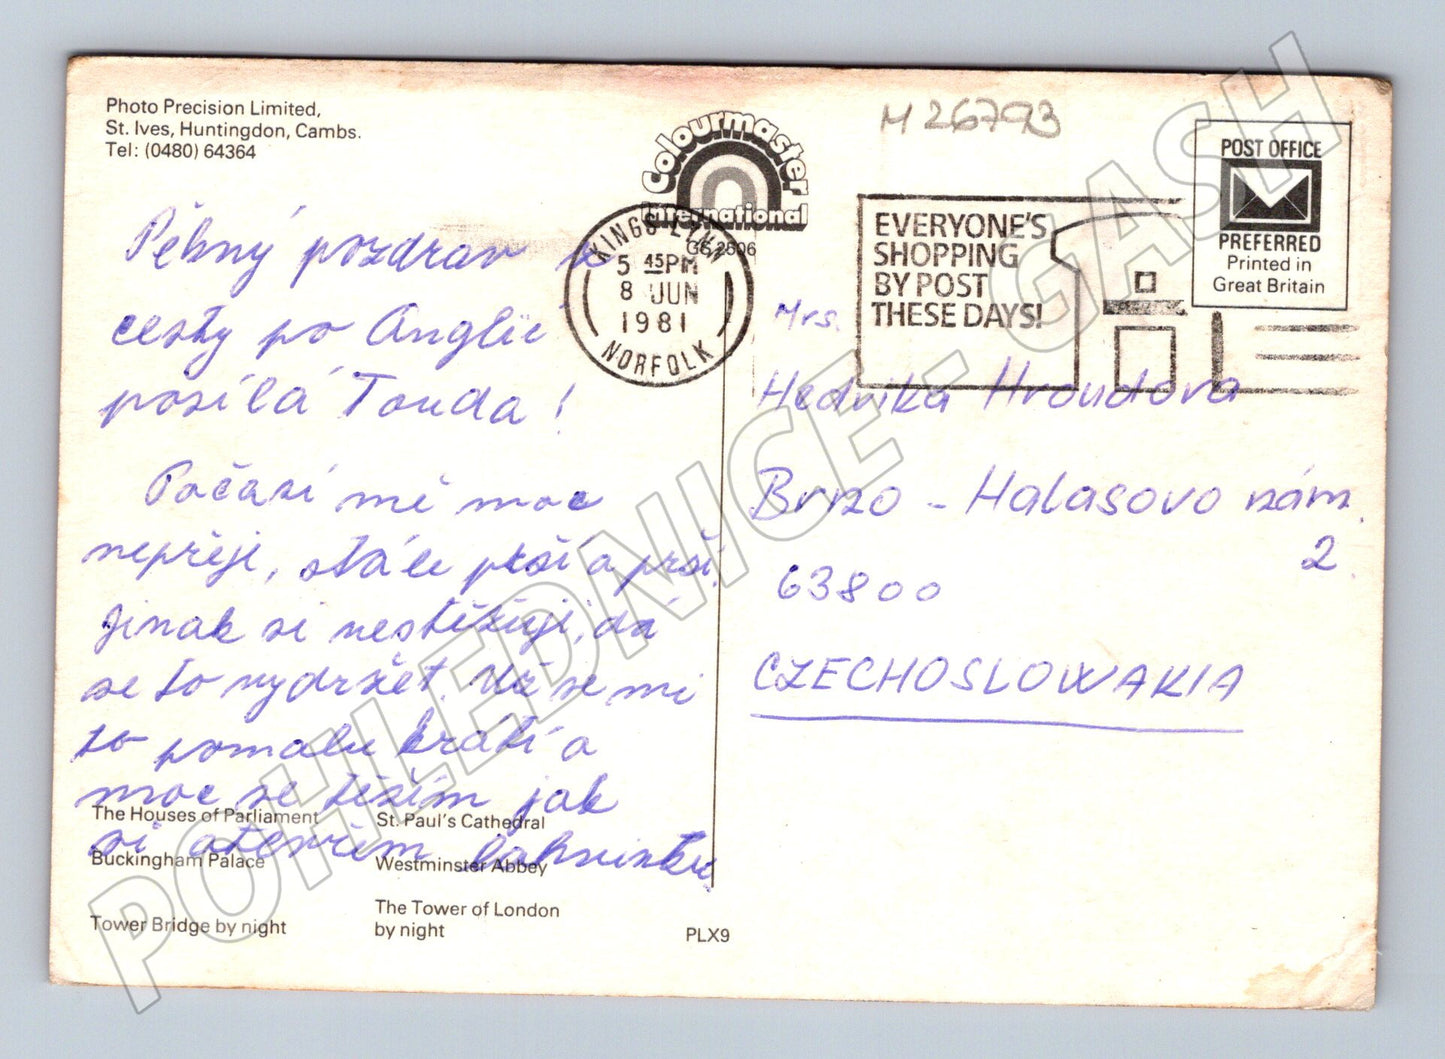 Photo Precision Limited,
St. Ives, Huntingdon, Cambs.
Tel: (0480) 64364
Colourmaster
International
GS 2606
M 26793
POST OFFICE
PREFERRED
Printed in
Great Britain
KINGS LYNN
5 45PM
8 JUN
1981
NORFOLK
EVERYONE'S
SHOPPING
BY POST
THESE DAYS!
Pěkný pozdrav z
cesty po Anglii
posílá Tonda!
Počasí mě moc
nepřeje, stále prší a prší.
Jinak si nestěžuji, dá
se to vydržet. Už se mi
to pomalu krátí a
moc se těším jak
si otevřem lahvinku
Mrs.
Hedvika Hroudova
Brno - Halasovo nám.
2.
63800
CZECHOSLOWAKIA
The Houses of Parliament
St. Paul's Cathedral
Buckingham Palace
Westminster Abbey
Tower Bridge by night
The Tower of London
by night
PLX9
POHLEDNICE - GASH